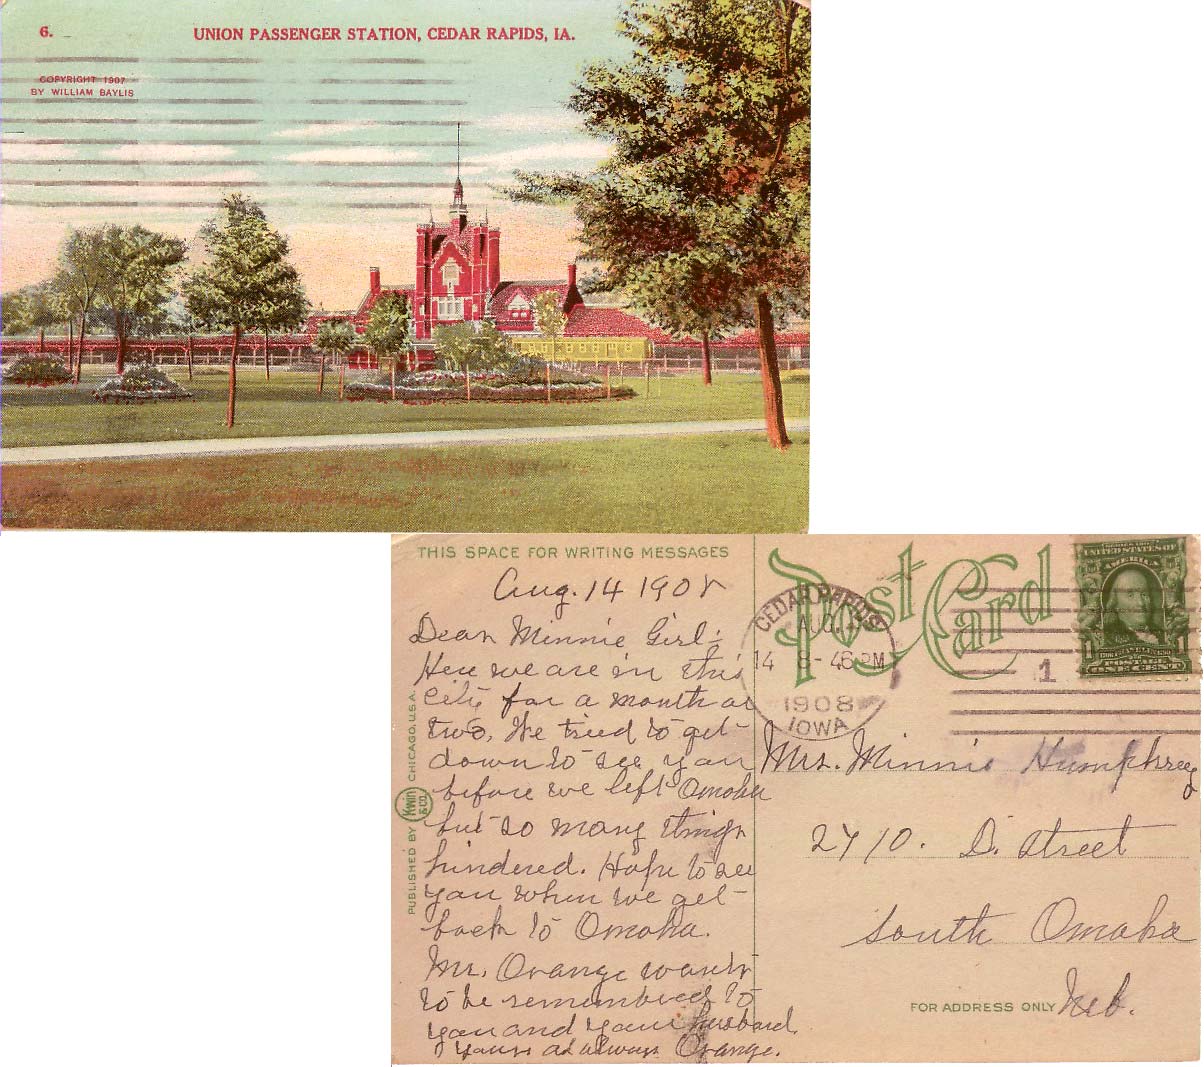 6.
UNION PASSENGER STATION, CEDAR RAPIDS, IA.
COPYRIGHT 1907
BY WILLIAM BAYLIS
THIS SPACE FOR WRITING MESSAGES
Aug. 14 1908
Dear Minnie Girl:
Here we are in this
City for a month or
two, We tried to get
down to see you
before we left Omaha
but so many things
hindered. Hope to see
you when we get
back to Omaha.
Mr. Orange wants
to be remembered to
you and your husband.
Yours as always Orange.
PUBLISHED BY Kwin & CO. CHICAGO, U.S.A.
Post Card
CEDAR RAPIDS
AUG.
14 8-46 PM
1908
IOWA
1
UNITED STATES OF
AMERICA
1 1
POSTAGE
ONE CENT
Mrs. Minnie Humphrey
2410. D. Street
South Omaha
FOR ADDRESS ONLY
Neb.